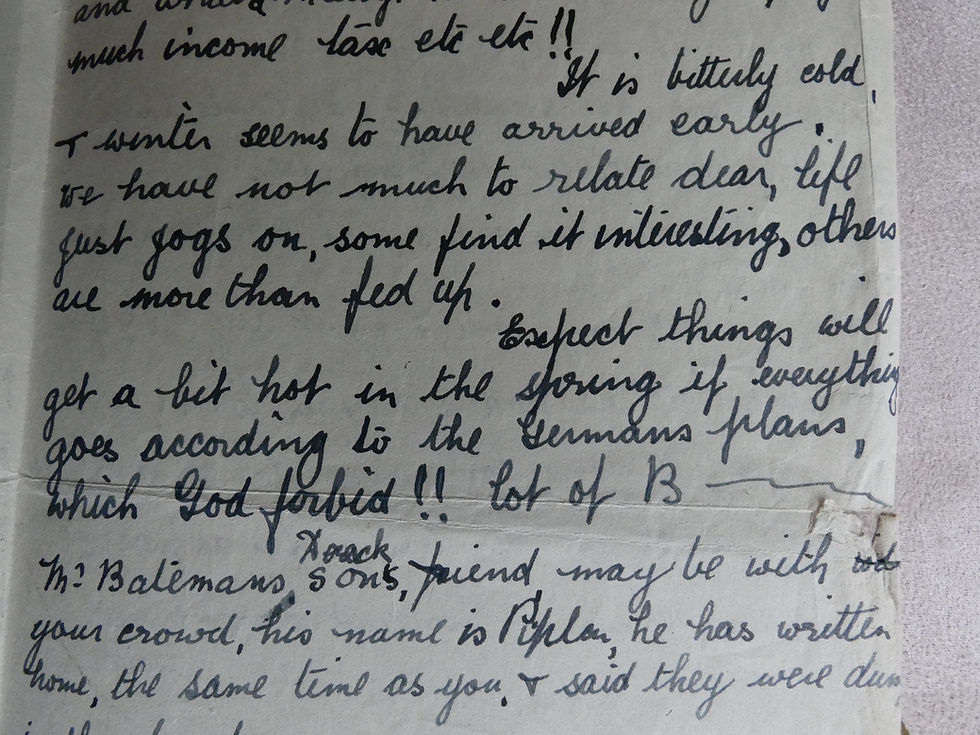 much income tax etc etc!!
It is bitterly cold,
& winter seems to have arrived early.
We have not much to relate dear, life
just jogs on, some find it interesting, others
are more than fed up.
Expect things will
get a bit hot in the spring if everything
goes according to the Germans plans,
which God forbid!! lot of B
Mr Batemans, sons, friend may be with
your crowd, his name is he has written
home, the same time as you, & said they were